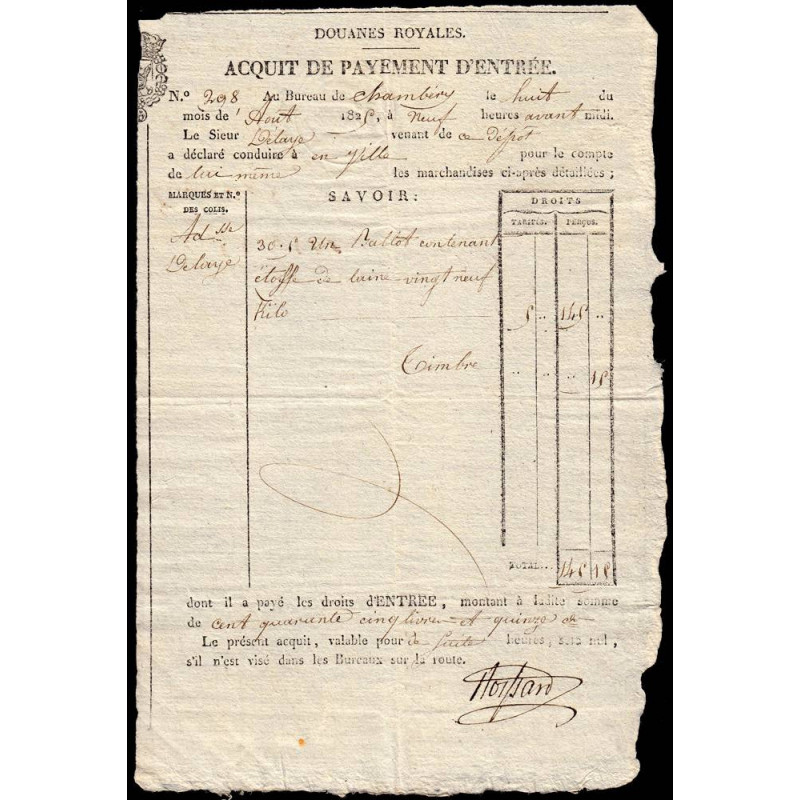 DOUANES ROYALES.
ACQUIT DE PAYEMENT D'ENTRÉE.
N.º 298 Au Bureau de Chambéry le huit du
mois de Aout 1825, à neuf heures avant midi.
Le Sieur Delaye venant de ce dépot
a déclaré conduire à en Ville pour le compte
de lui même les marchandises ci-après détaillées ;
MARQUES ET N.º
DES COLIS.
SAVOIR :
DROITS
TARIFÉS. PERÇUS.
Ad.sse
Delaye
30. Un Ballot contenant
étoffe de laine vingt neuf
Kilo 5 .. 145 ..
Timbre .. .. .. 15
TOTAL... 145 15
dont il a payé les droits d'ENTRÉE, montant à ladite somme
de cent quarante cinq livres et quinze
Le présent acquit, valable pour de suite heures, sera nul,
s'il n'est visé dans les Bureaux sur la route.